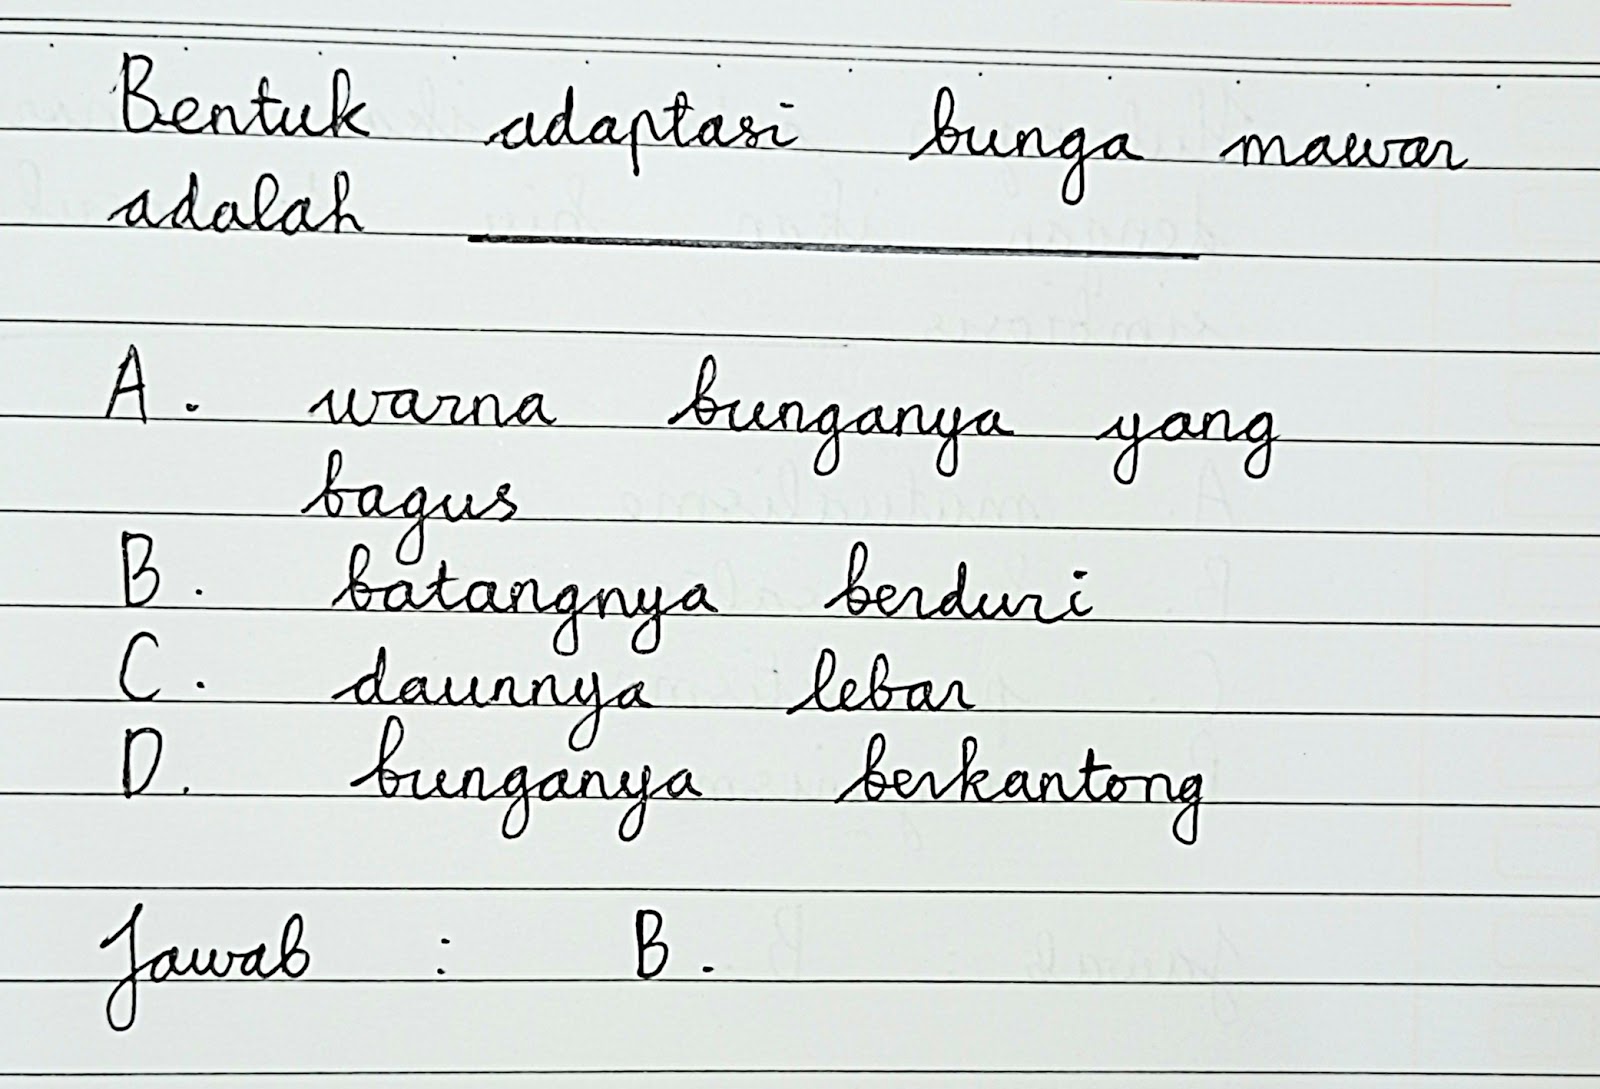 Bentuk adaptasi bunga mawar
adalah ____________
A. warna bunganya yang
bagus
B. batangnya berduri
C. daunnya lebar
D. bunganya berkantong
Jawab : B.